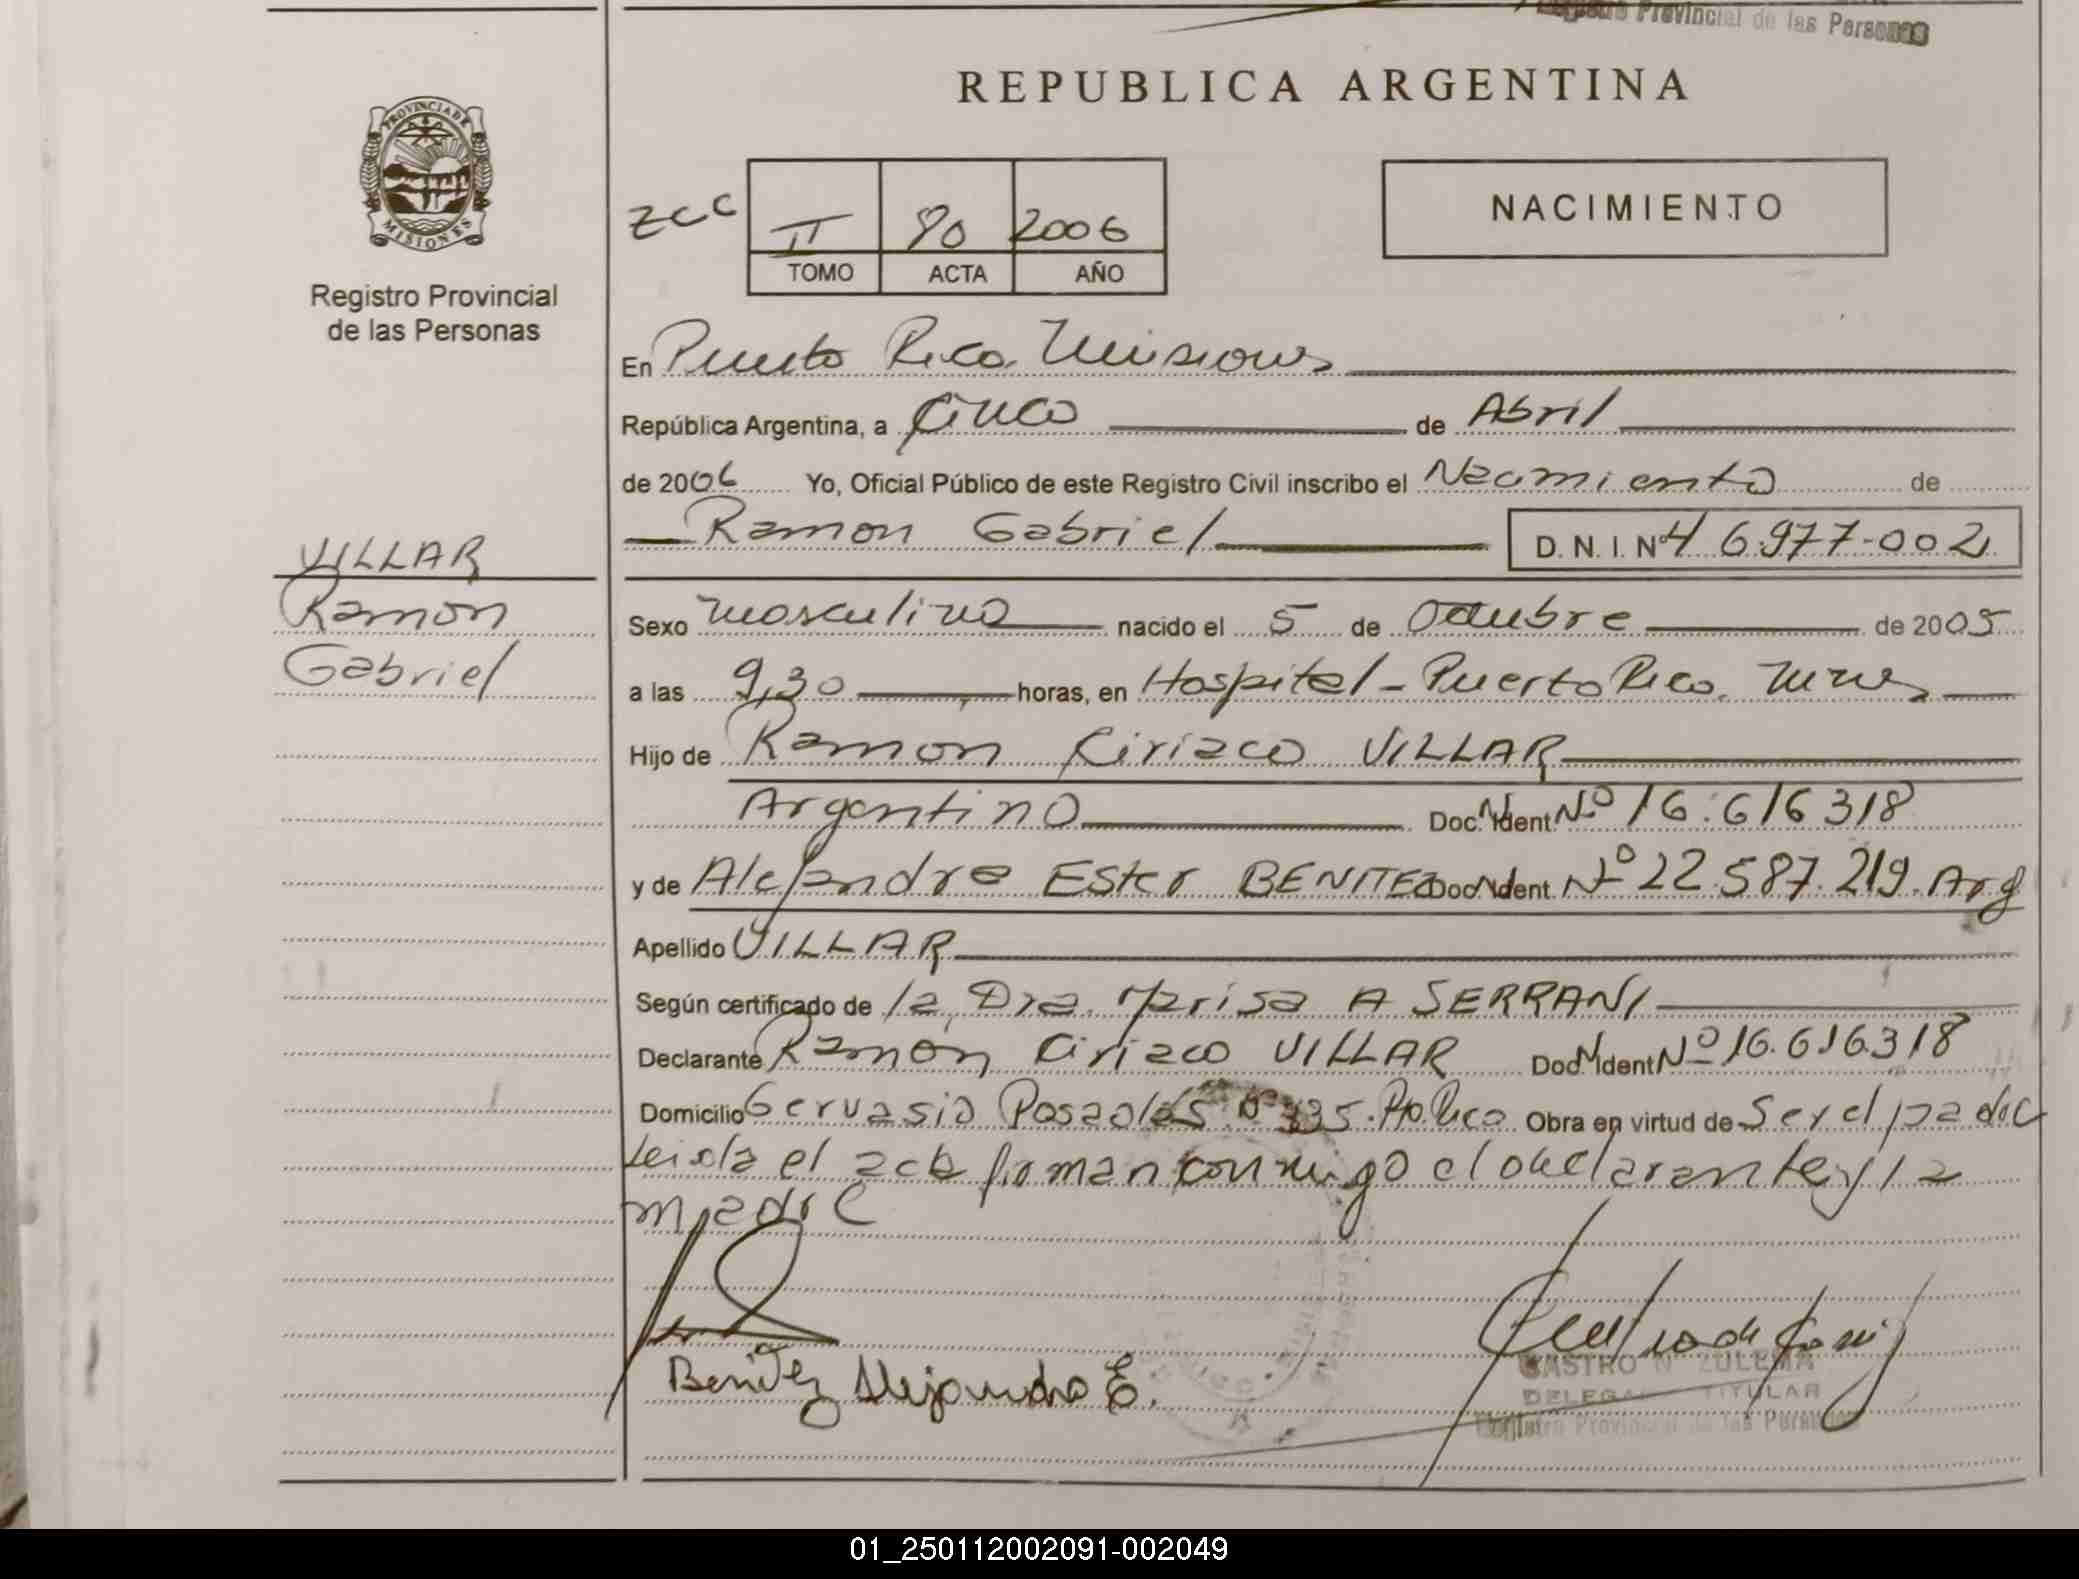 Registro Provincial de las Personas
REPUBLICA ARGENTINA
PROVINCIA DE
MISIONES
Registro Provincial
de las Personas
NACIMIENTO
II 90 2006
TOMO ACTA AÑO
En Puerto Rico Misiones
República Argentina, a Cinco de Abril
de 2006 Yo, Oficial Público de este Registro Civil inscribo el Nacimiento de
Ramon Gabriel D. N. I. Nº 46.977-002
VILLAR
Ramon
Gabriel
Sexo masculino nacido el 5 de Octubre de 2005
a las 9,30 horas, en Hospital - Puerto Rico. Mnes
Hijo de Ramon Ciriaco VILLAR
Argentino Doc. Ident Nº 16.616318
y de Alejandra Ester BENITEZ Doc Ident Nº 22.587.219. Arg
Apellido VILLAR
Según certificado de la Dra. Marisa A SERRANI
Declarante Ramon Ciriaco VILLAR Doc Ident Nº 16.616318
Domicilio Gervasio Posadas Nº 335. Pto. Rico Obra en virtud de Ser el padre
Leida el acta firman conmigo el declarante y la
madre
Benitez Alejandra E.
CASTRO N. ZULEMA
DELEGADA TITULAR
Registro Provincial de las Personas
01_250112002091-002049